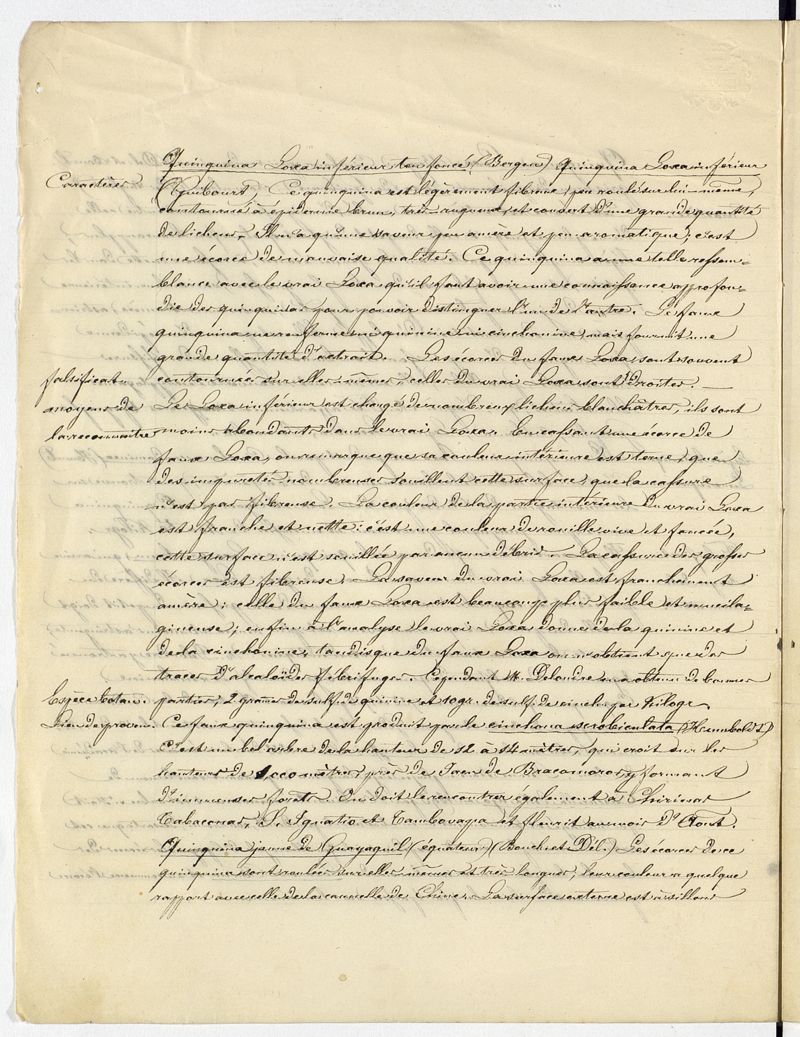 Quinquina Loxa inférieur ten foncé (Bergen) Quinquina Loxa inférieur
Caractères (Guibourt, Ce quinquina est légèrement fibreux, peu roulé sur lui-même,
contourné à épiderme brun, très rugueux, et couvert d'une grande quantité
de lichens. Il n'a qu'une saveur peu amère et peu aromatique; c'est
une écorce de mauvaise qualité. Ce quinquina a une telle ressem-
blance avec le vrai Loxa qu'il faut avoir une connaissance approfon-
die des quinquinas pour pouvoir distinguer l'un de l'autre. Le faux
quinquina ne renferme ni quinine ni cinchonine, mais fournit une
grande quantité d'extrait. Les écorces du faux Loxa sont souvent
falsificat. contournées sur elles-mêmes, celles du vrai Loxa sont droites. —
moyens de Le Loxa inférieur est chargé de nombreux lichens blanchâtres, ils sont
la reconnaître moins abondants dans le vrai Loxa. En cassant une écorce de
faux Loxa, on remarque que sa couleur intérieure est terne, que
des impuretés nombreuses souillent cette surface, que la cassure
n'est pas fibreuse. La couleur de la partie intérieure du vrai Loxa
est franche et nette: c'est une couleur de rouille vive et foncée,
cette surface n'est souillée par aucun débris. La cassure des grosses
écorces est fibreuse. La saveur du vrai Loxa est franchement
amère; celle du faux Loxa est beaucoup plus faible et mucila-
gineuse; enfin à l'analyse le vrai Loxa donne de la quinine et
de la cinchonine, tandis que du faux Loxa on n'obtient que des
traces d'alcaloïdes fébrifuges. Cependant M. Delondre en a obtenu de bonnes
Espèce botan. parties, 2 grames de sulf. de quinine et 10 gr. de sulf. de cinch. par Kilogr.
Lieu de proven. Ce faux quinquina est produit par le cinchona scrobiculata (Humboldt)
C'est un bel arbre de la hauteur de 12 à 14 mètres, qui croit sur les
hauteurs de 1,000 mètres, près de Jaen de Bracomoros, y formant
d'immenses forêts. On doit le rencontrer également à Chirinos
Tabaconas, S. Ignatio et Tambovapa et fleurit au mois d'Aout.
Quinquina jaune de Guayaquil (équateur) (Bouch. et Del.) Les écorces de ce
quinquina sont roulées sur elles-mêmes et très longues, leur couleur a quelque
rapport avec celle de la cannelle de Chine. La surface externe est à sillons